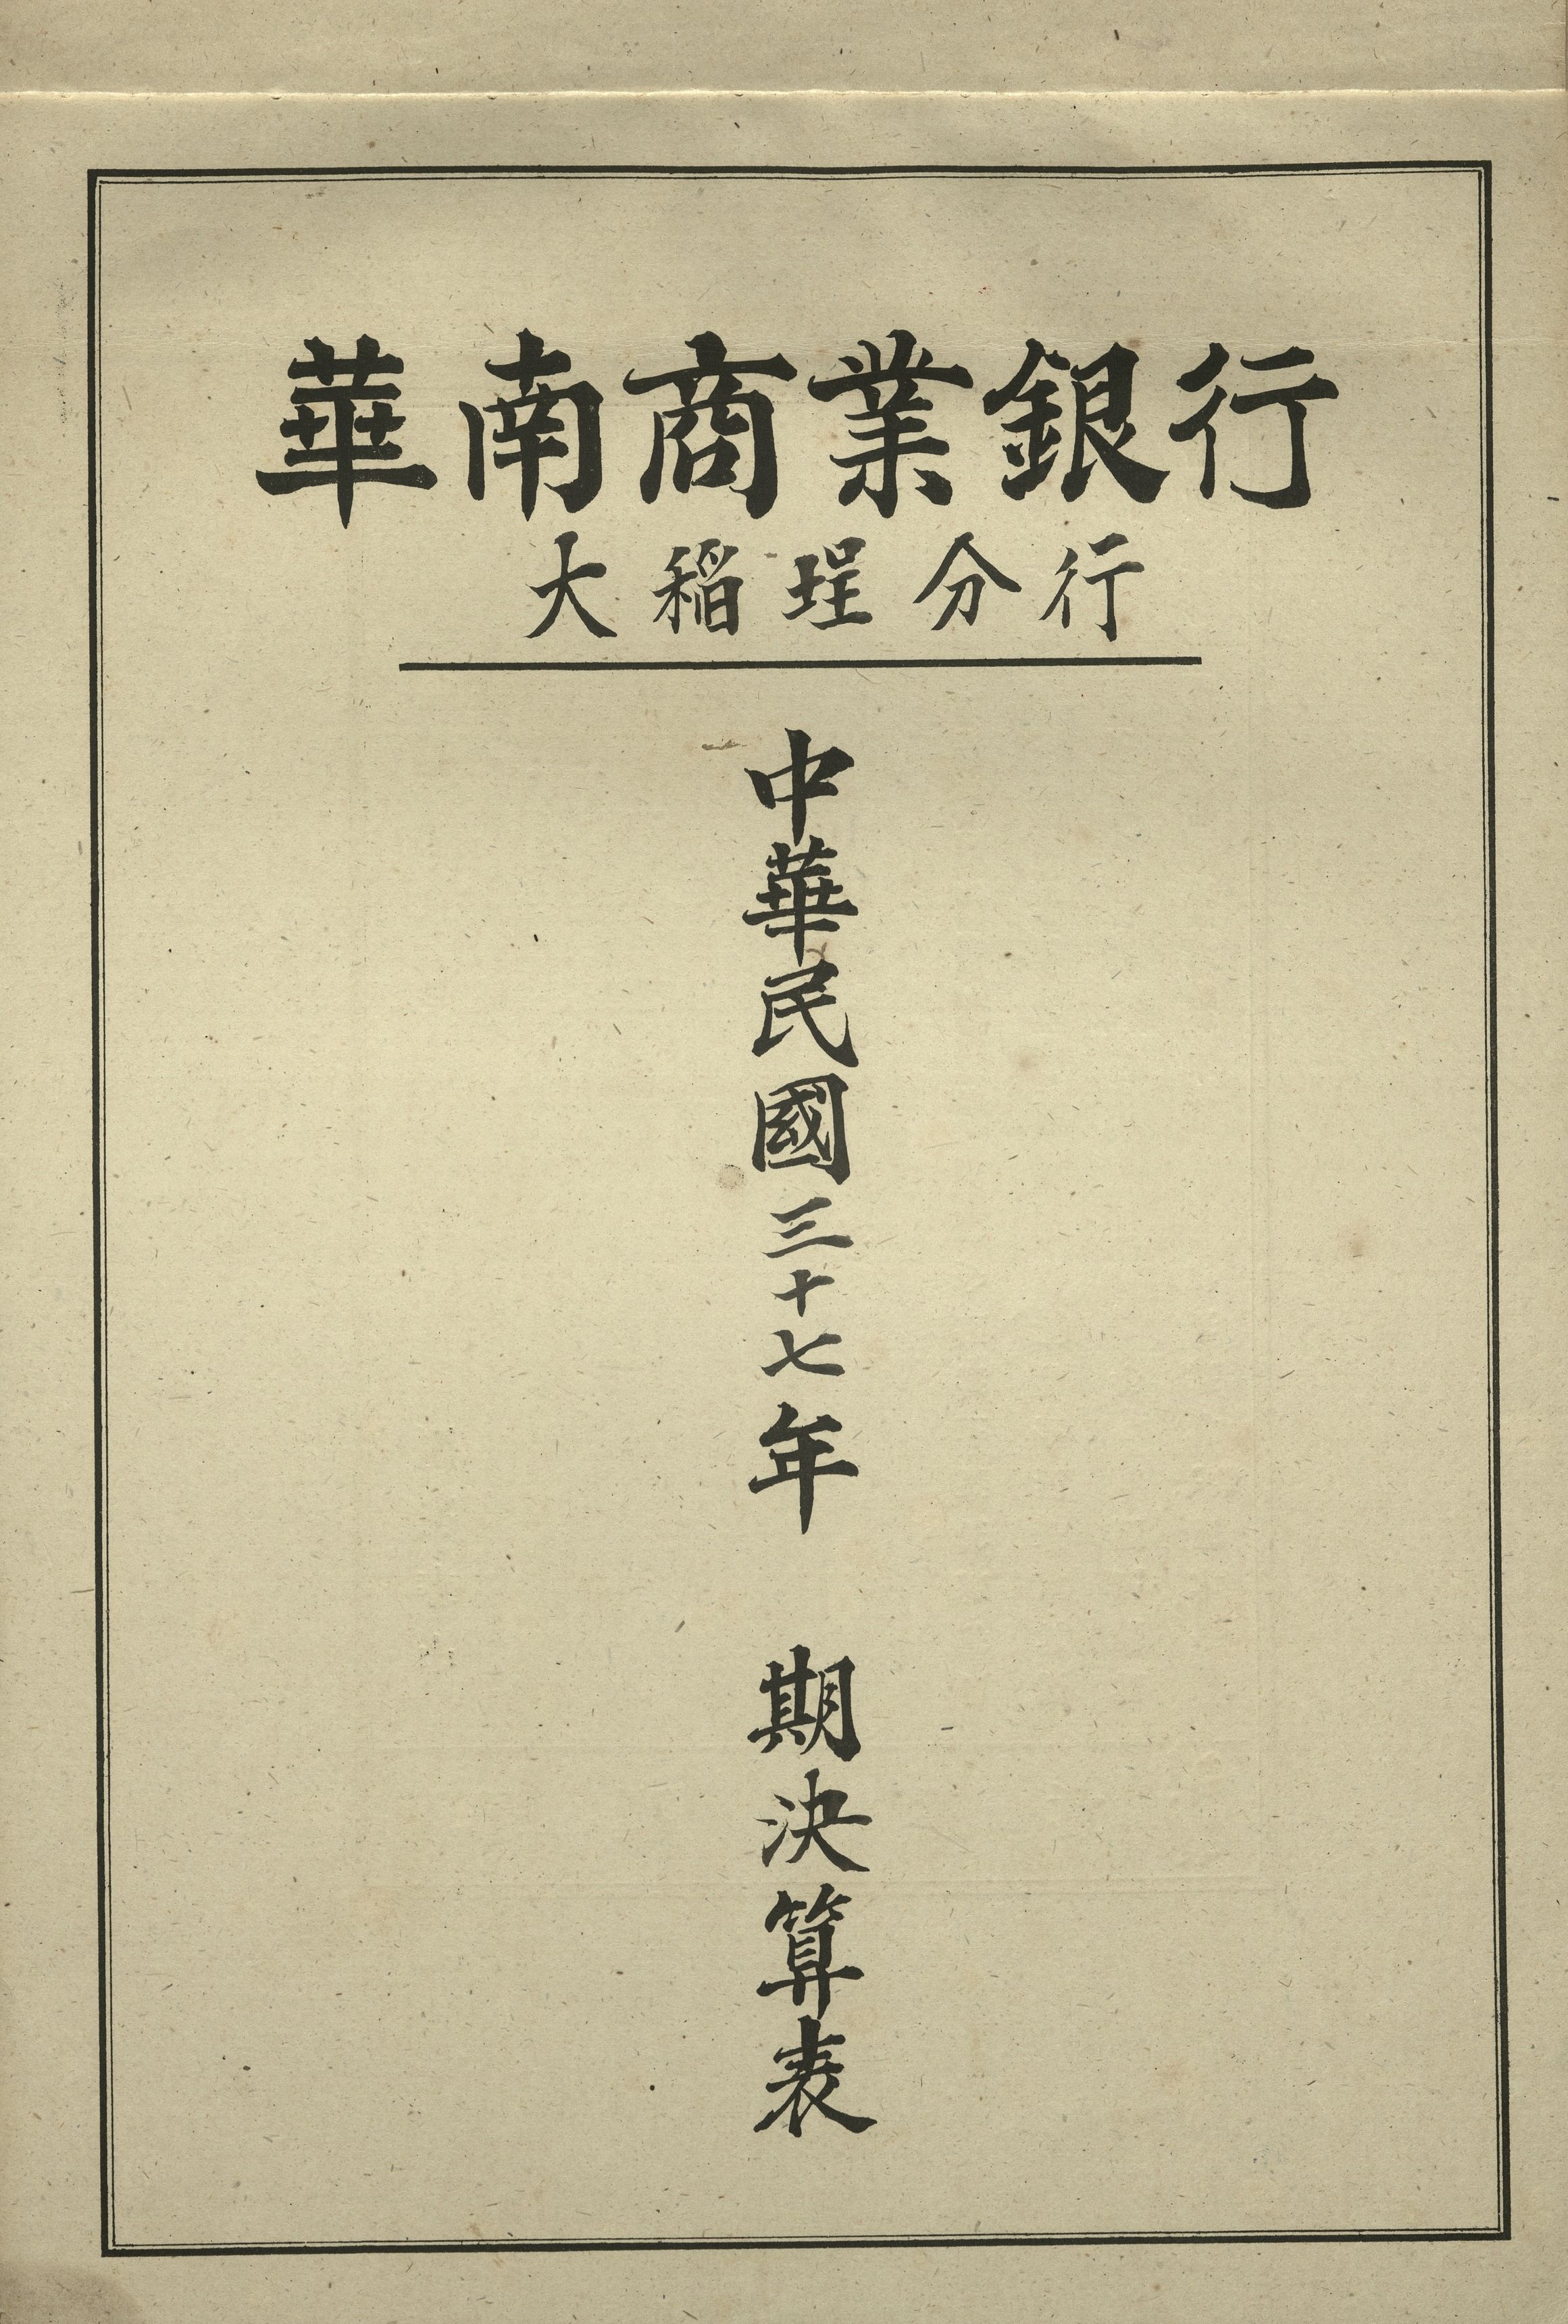 華南商業銀行
大稻埕分行
中華民國三十七年 期決算表